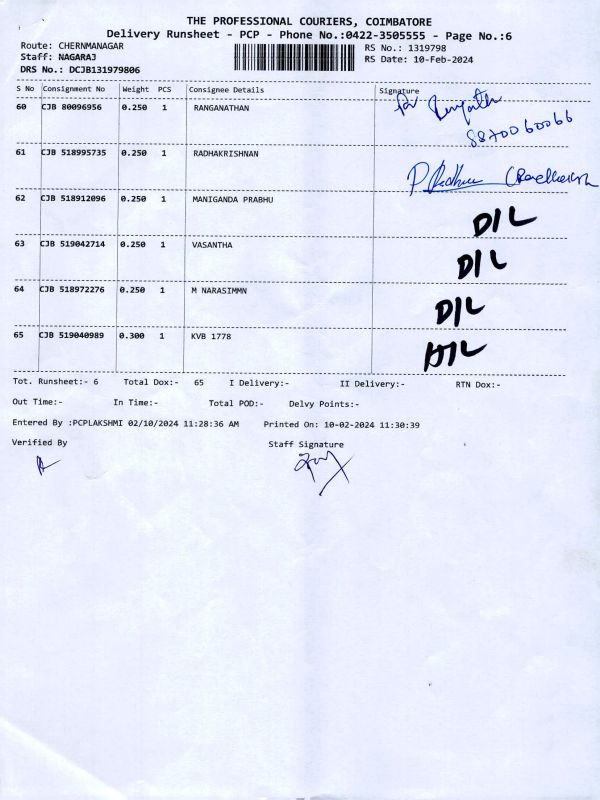 THE PROFESSIONAL COURIERS, COIMBATORE
Delivery Runsheet - PCP - Phone No.:0422-3505555 - Page No.:6
Route: CHERNMANAGAR RS No.: 1319798
Staff: NAGARAJ RS Date: 10-Feb-2024
DRS No.: DCJB131979806
S No Consignment No Weight PCS Consignee Details Signature
60 CJB 80096956 0.250 1 RANGANATHAN
8870060066
61 CJB 518995735 0.250 1 RADHAKRISHNAN
P. Radhu
62 CJB 518912096 0.250 1 MANIGANDA PRABHU D/L
63 CJB 519042714 0.250 1 VASANTHA D/L
64 CJB 518972276 0.250 1 M NARASIMMN D/L
65 CJB 519040989 0.300 1 KVB 1778 D/L
Tot. Runsheet:- 6 Total Dox:- 65 I Delivery:- II Delivery:- RTN Dox:-
Out Time:- In Time:- Total POD:- Delvy Points:-
Entered By :PCPLAKSHMI 02/10/2024 11:28:36 AM Printed On: 10-02-2024 11:30:39
Verified By Staff Signature